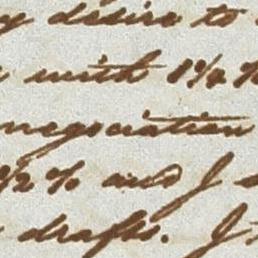 desire to
with 1½ %
negociation
½ % and I
drafts. I